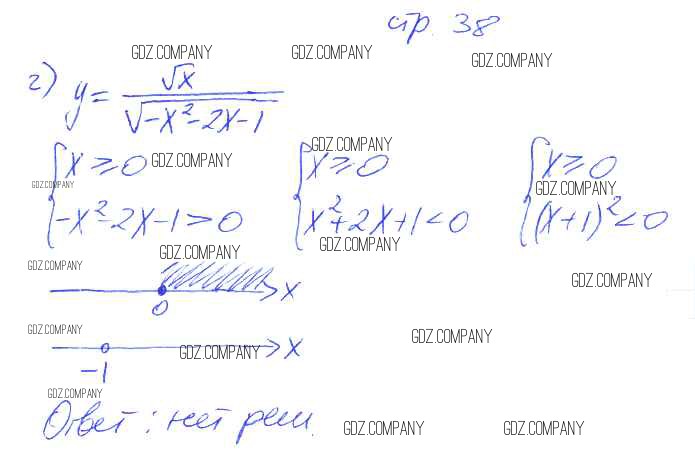 стр. 38
GDZ.COMPANY GDZ.COMPANY GDZ.COMPANY
г) y = √x / √(-x² - 2x - 1)
GDZ.COMPANY
{x ≥ 0 GDZ.COMPANY {x ≥ 0 {x ≥ 0
GDZ.COMPANY GDZ.COMPANY
{-x² - 2x - 1 > 0 {x² + 2x + 1 < 0 {(x + 1)² < 0
GDZ.COMPANY GDZ.COMPANY
GDZ.COMPANY GDZ.COMPANY
x
0
GDZ.COMPANY GDZ.COMPANY
GDZ.COMPANY x
-1
GDZ.COMPANY
Ответ: нет реш.
GDZ.COMPANY GDZ.COMPANY